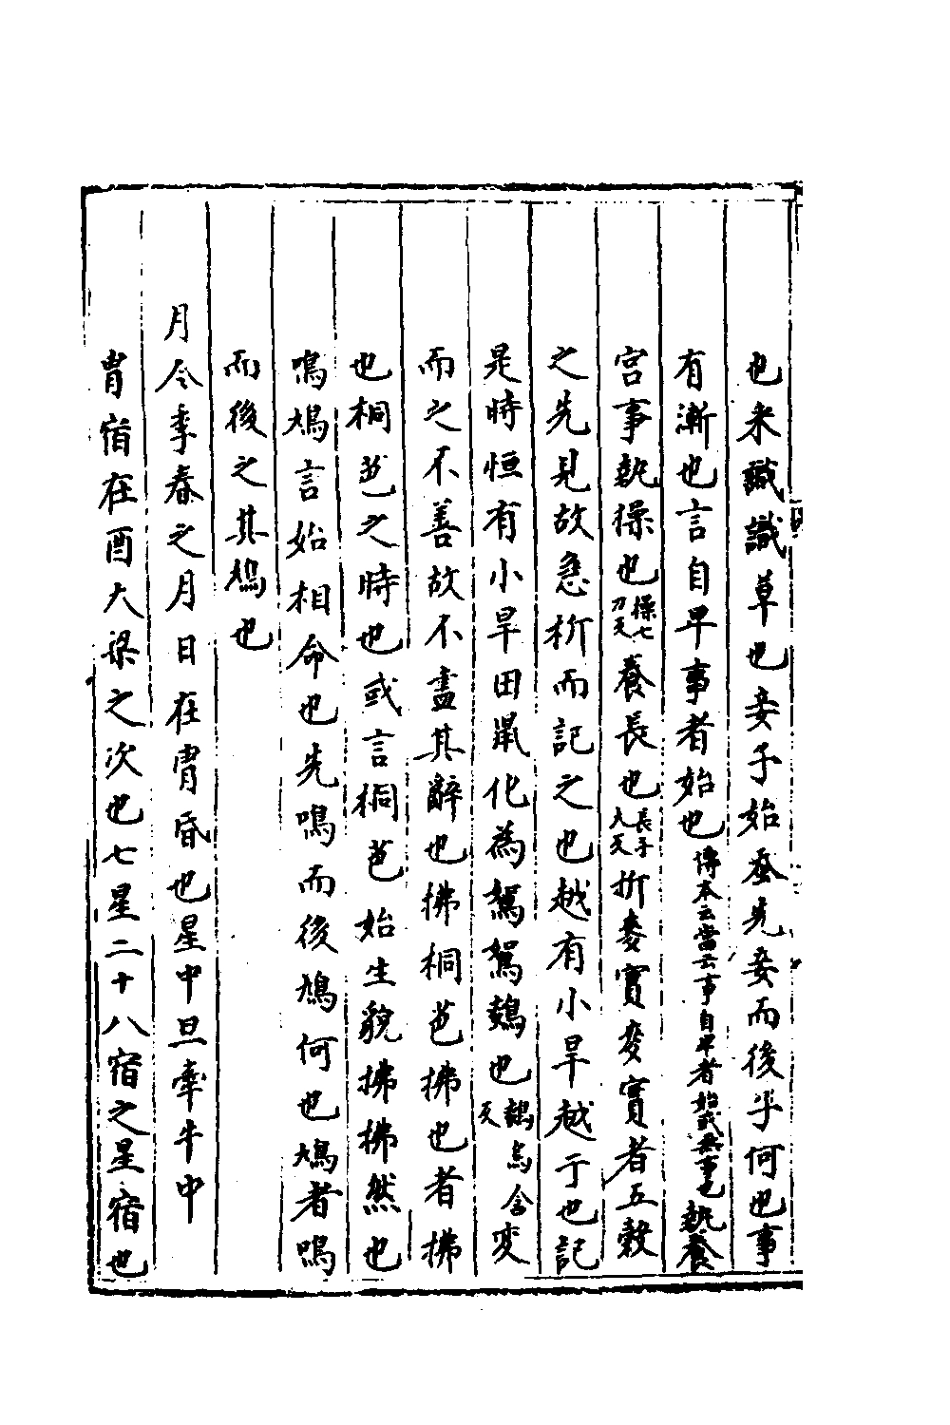 也采識識草也妾子始蚕先妾而後子何也事
有漸也言自早事者始也傳本云當云事自早者始或無事也執養
宮事執操也操七刀天養長也長子大天祈麥實麥實者五穀
之先見故急祈而記之也越有小旱越于也記
是時恒有小旱田鼠化為鴽鴽鷃也鷃鳥含天変
而之不善故不盡其辭也拂桐芭拂也者拂
也桐芭之時也或言桐芭始生貌拂拂然也
鳴鳩言始相命也先鳴而後鳩何也鳩者鳴
而後之其鳩也
月令季春之月日在胃昏也星中旦牽牛中
胃宿在酉大梁之次也七星二十八宿之星宿也